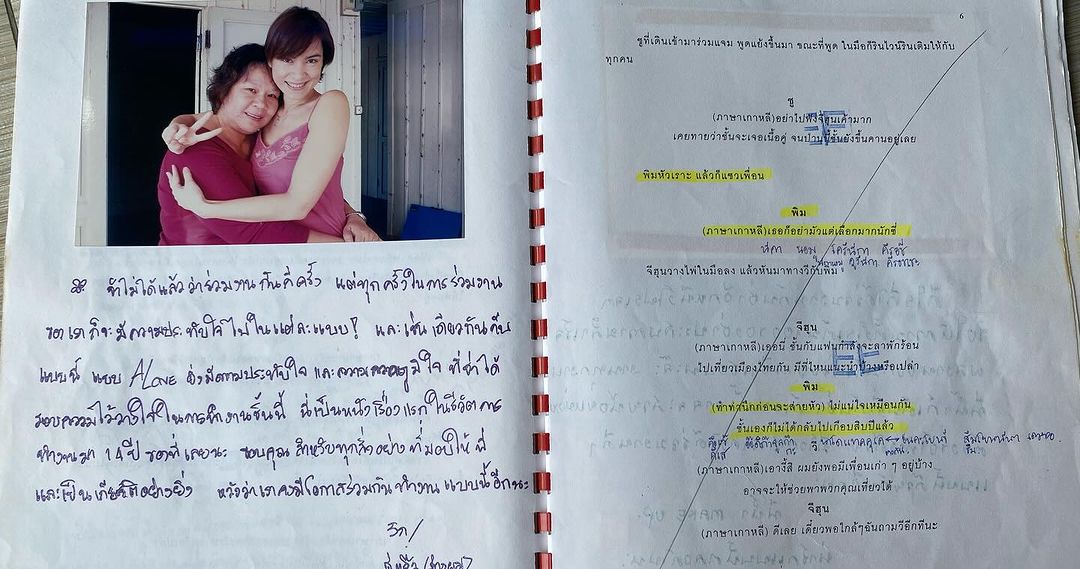 จำไม่ได้แล้วว่าร่วมงานกันกี่ครั้ง แต่ทุกครั้งในการร่วมงาน
ของเราก็จะมีความประทับใจไปในแต่ละแบบ? และเช่นเดียวกันกับ
แบบนี้ แบบ ALONE ยิ่งมีความประทับใจ และความภูมิใจ ที่ได้
มอบความไว้วางใจในการทำงานชิ้นนี้ นี่เป็นหนังเรื่องแรกในชีวิตการ
ทำงานมา 14 ปี ของพี่เลยนะ ขอบคุณ สำหรับทุกสิ่งอย่าง ที่มอบให้ พี่
และเป็นเกียรติอย่างยิ่ง หวังว่าเราคงมีโอกาสร่วมกันทำงาน แบบนี้อีกนะ
รัก/
6
ชูที่เดินเข้ามาร่วมแจม พูดแย้งขึ้นมา ขณะที่พูด ในมือก็รินไวน์รินเติมให้กับ
ทุกคน
ชู
(ภาษาเกาหลี)อย่าไปฟังจีฮุนเค้ามาก
เคยทายว่าชั้นจะเจอเนื้อคู่ จนป่านนี้ชั้นยังขึ้นคานอยู่เลย
พิมหัวเราะ แล้วก็แซวเพื่อน
พิม
(ภาษาเกาหลี)เธอก็อย่ามัวแต่เลือกมากนักซี่
จีฮุนวางไพ่ในมือลง แล้วหันมาทางวีกับพิม
จีฮุน
(ภาษาเกาหลี)เออนี่ ชั้นกับแฟนกำลังจะลาพักร้อน
ไปเที่ยวเมืองไทยกัน มีที่ไหนแนะนำบ้างหรือเปล่า
พิม
(ทำท่านึกก่อนจะส่ายหัว) ไม่แน่ใจเหมือนกัน
ชั้นเองก็ไม่ได้กลับไปเกือบสิบปีแล้ว
วี
(ภาษาเกาหลี)เอางี้สิ ผมยังพอมีเพื่อนเก่า ๆ อยู่บ้าง
อาจจะให้ช่วยพาพวกคุณเที่ยวได้
จีฮุน
(ภาษาเกาหลี) ดีเลย เดี๋ยวพอใกล้ๆฉันถามวีอีกทีนะ